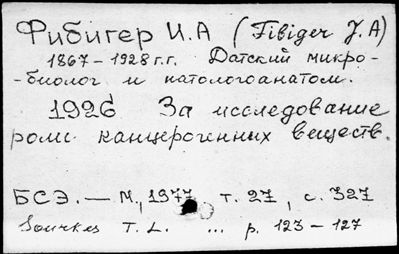 Фибигер И.А (Fibiger J.A)
1867 – 1928 г.г. Датский микро-
-биолог и патологоанатом.
1926 За исследование
роли канцерогенных веществ.
БСЭ. — М., 1977, т. 27, с. 327
Sourkes T. L. ... p. 123 – 127